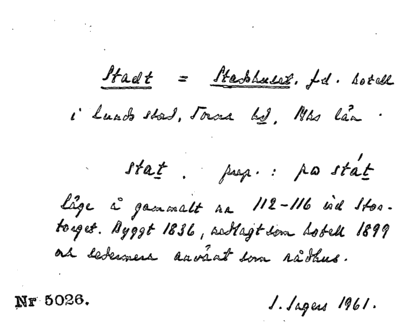 Stadt = Stadshuset, f.d. hotell
i Lunds stad, Torna hd, Mhs län.
stat. prep.: pa státt
läge å gammalt nr 112-116 vid Stor-
torget. Byggt 1836, nedlagt som hotell 1899
och sedermera använt som rådhus.
Nr 5026. I. Ingers 1961.